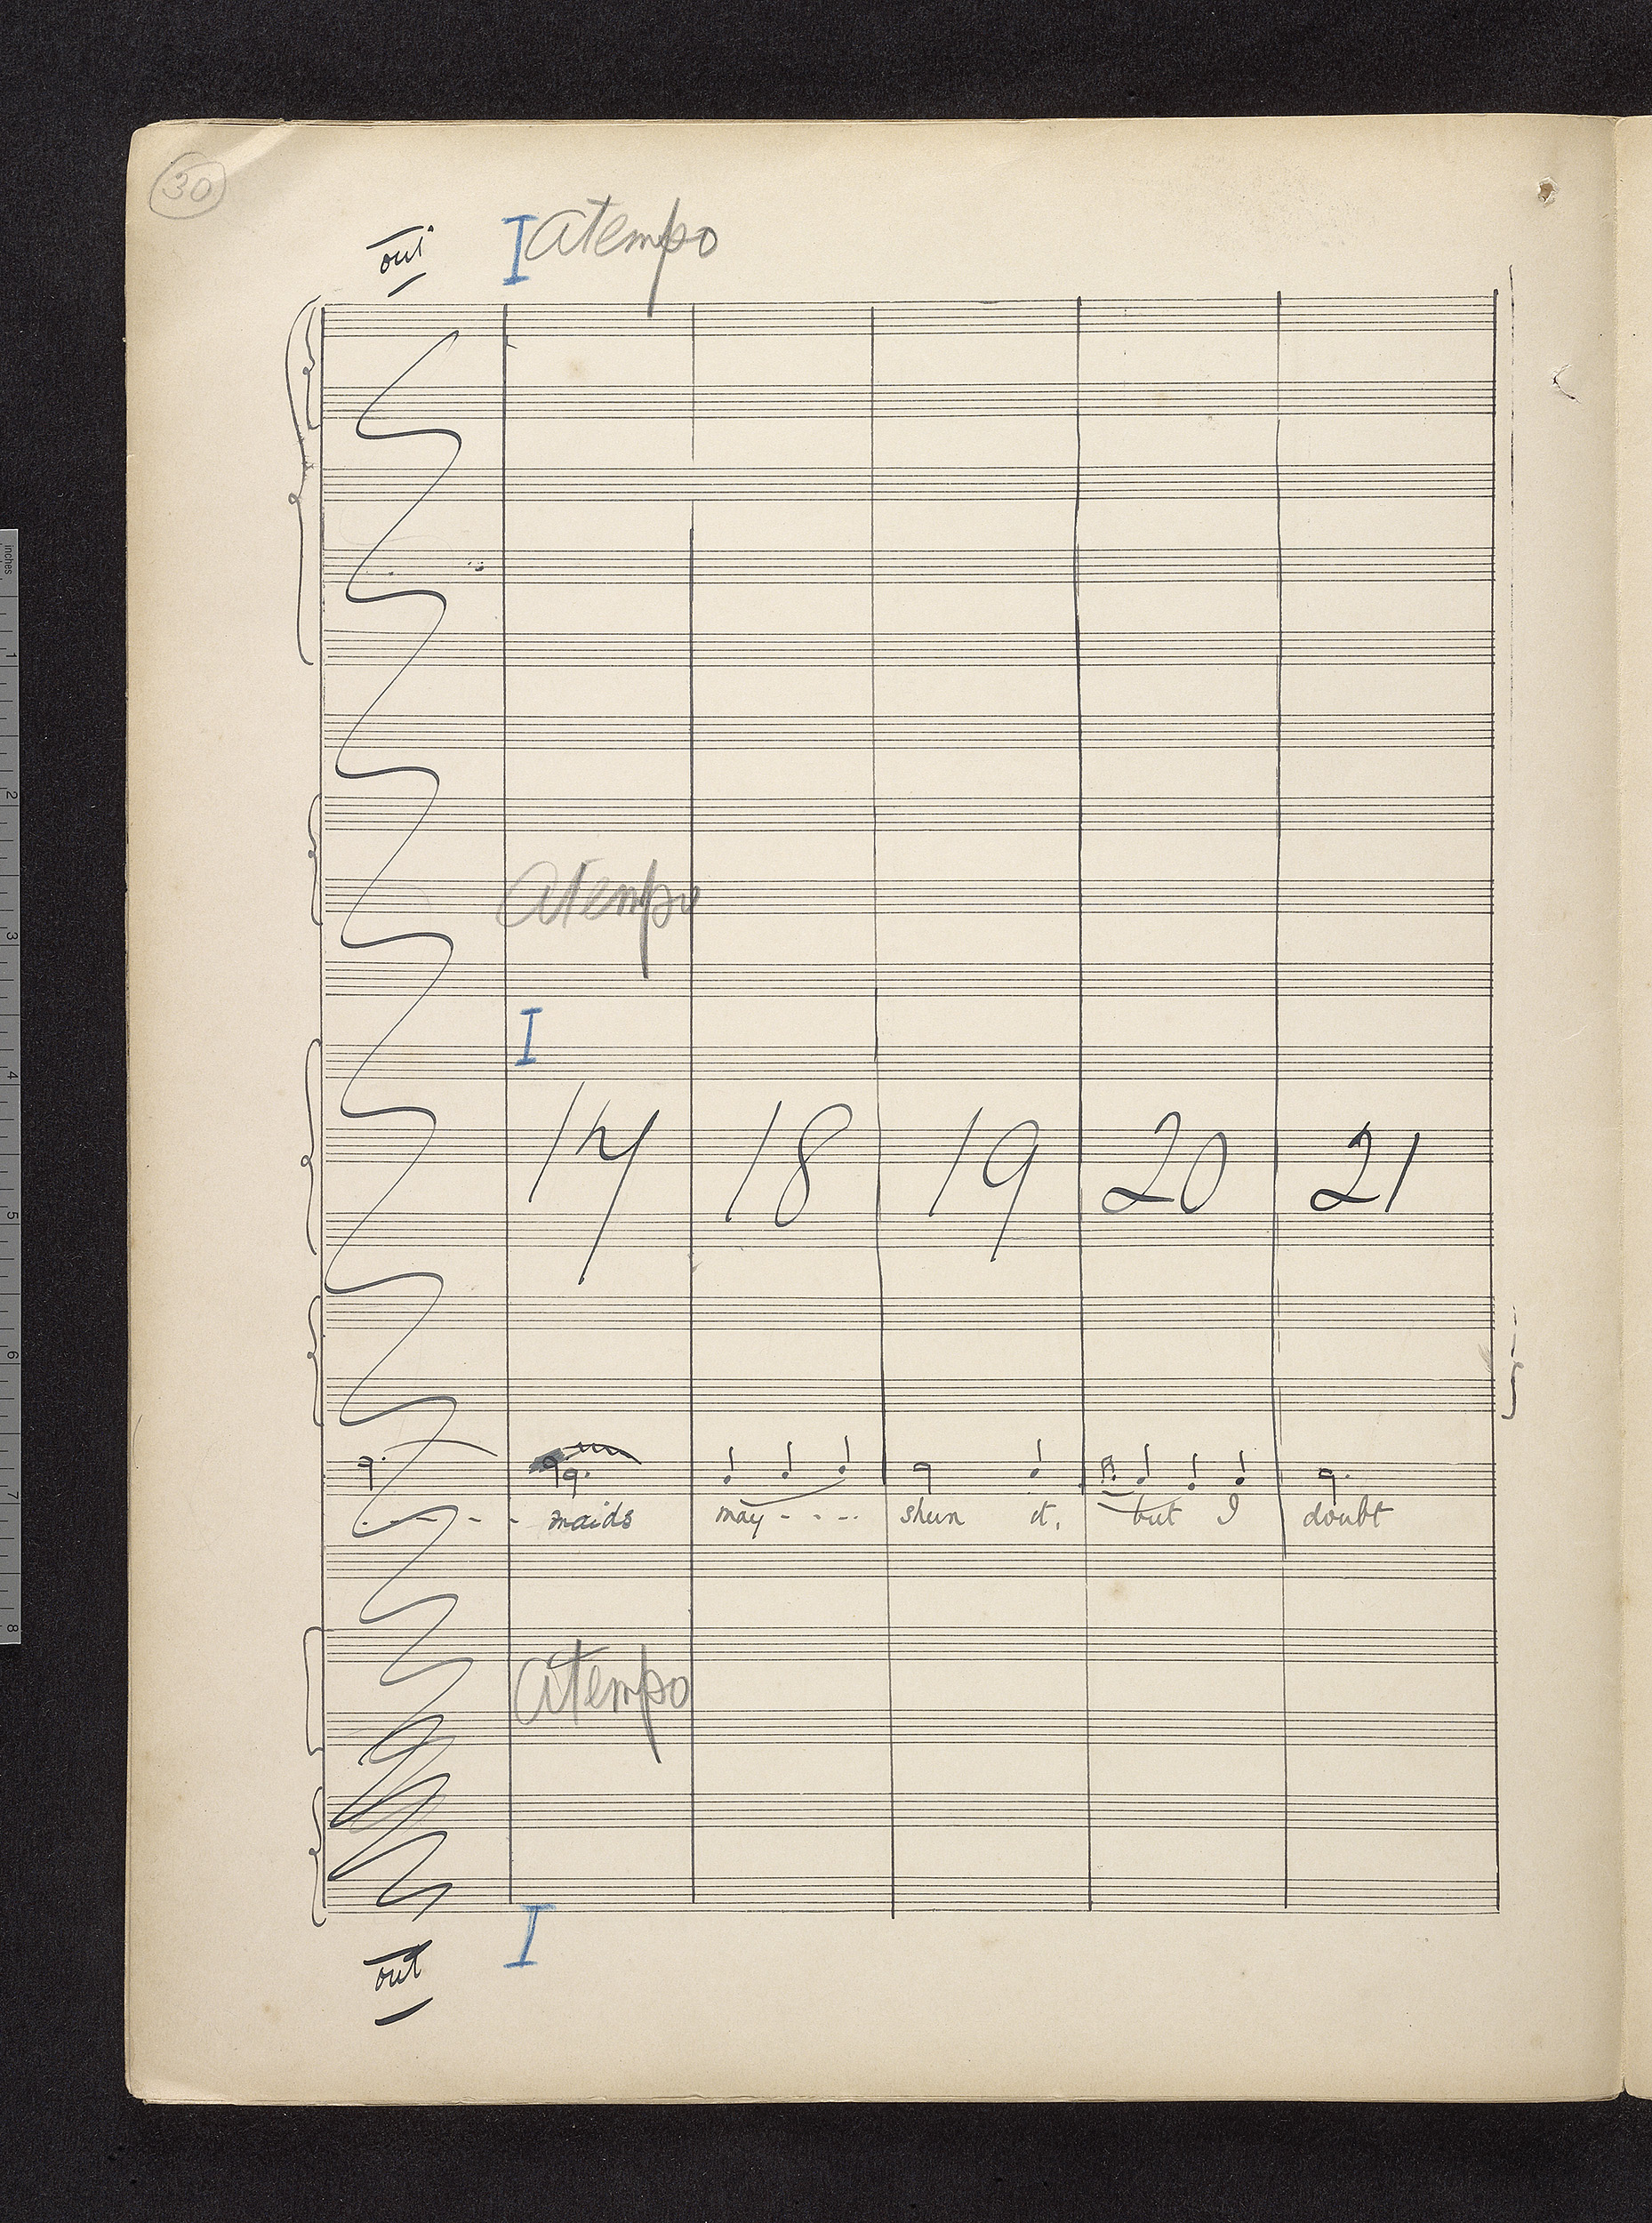 30
out I a tempo
a tempo
I
17 18 19 20 21
- - - - maids may - - - shun it, but I doubt
a tempo
I
out
inches
1
2
3
4
5
6
7
8